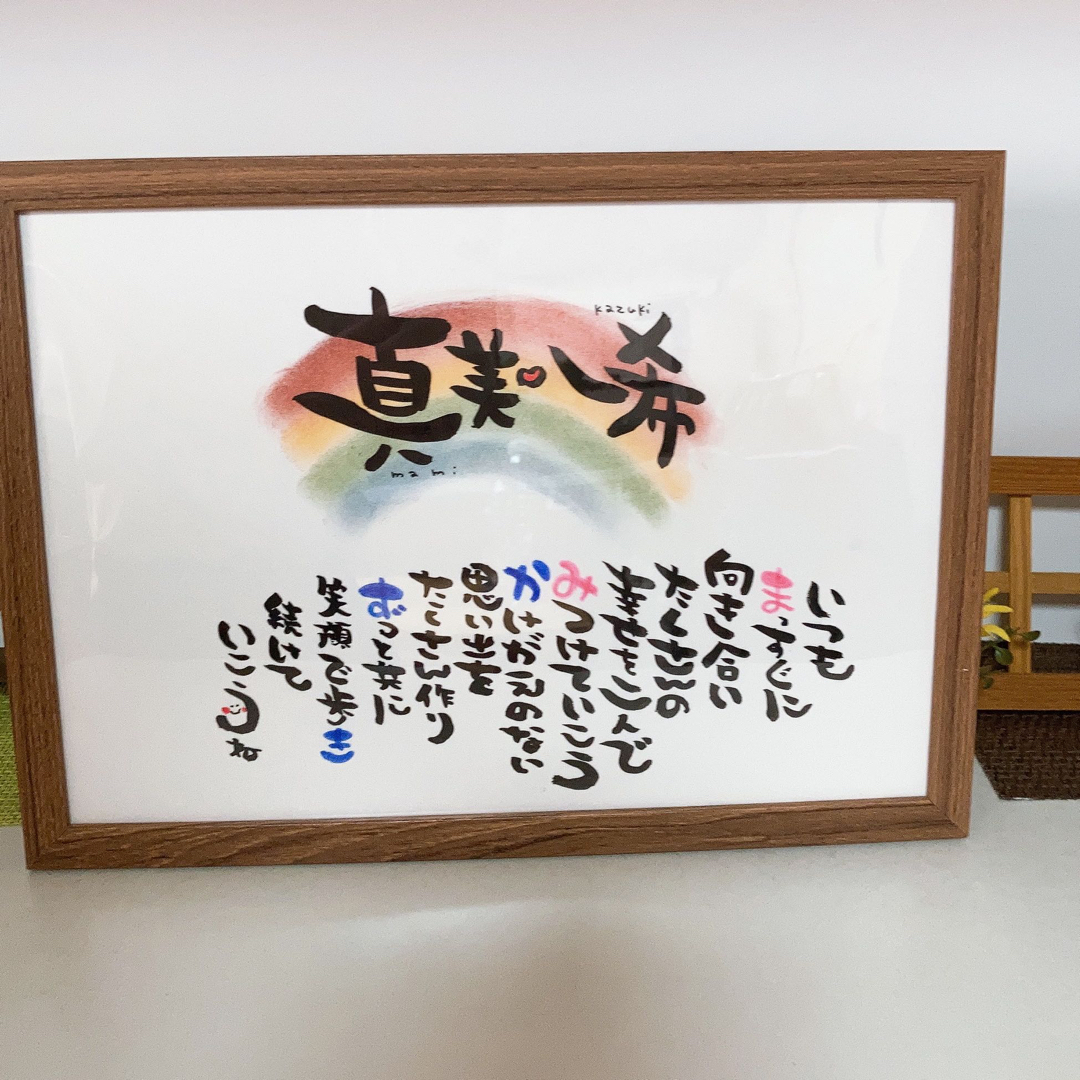 真美 一希
kazuki
mami
いつも
まっすぐに
向き合い
たくさんの
幸せを二人で
みつけていこう
かけがえのない
思い出を
たくさん作り
ずっと共に
笑顔で歩き
続けて
いこうね